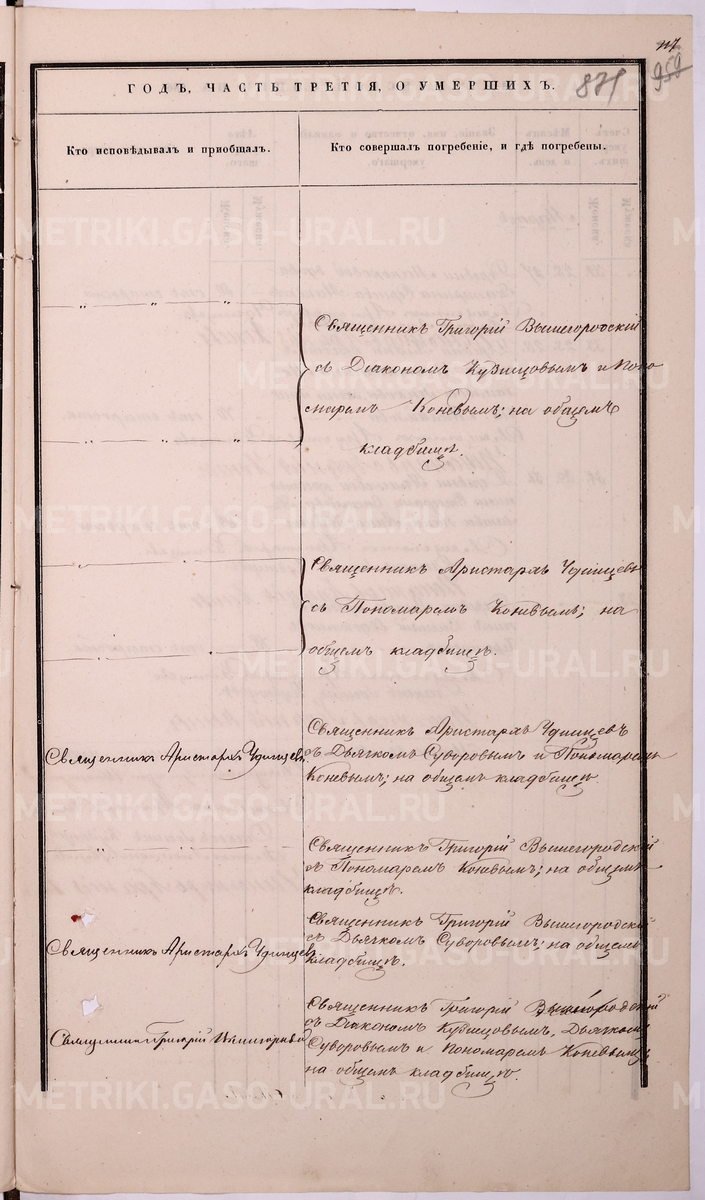 117
ГОДЪ, ЧАСТЬ ТРЕТІЯ, О УМЕРШИХЪ.
871
958
Кто исповѣдывалъ и пріобщалъ.
Кто совершалъ погребеніе, и гдѣ погребены.
Священникъ Григорій Вышегородскій
съ Діакономъ Кузнецовымъ и Поно
маремъ Коневымъ; на общемъ
кладбищѣ.
Священникъ Аристархъ Удинцевъ
съ Пономаремъ Коневымъ; на
общемъ кладбищѣ.
Священникъ Аристархъ Удинцевъ.
Священникъ Аристархъ Удинцевъ
съ Дьячкомъ Суворовымъ и Пономаремъ
Коневымъ; на общемъ кладбищѣ
Священникъ Григорій Вышегородскій
съ Пономаремъ Коневымъ; на общемъ
кладбищѣ.
Священникъ Аристархъ Удинцевъ
Священникъ Григорій Вышегородскій
съ Дьячкомъ Суворовымъ; на общемъ
кладбищѣ.
Священникъ Григорій
Священникъ Григорій Вышегородскій
съ Діакономъ Кузнецовымъ, Дьячкомъ
Суворовымъ и Пономаремъ Коневымъ
на общемъ кладбищѣ.
METRIKI.GASO-URAL.RU